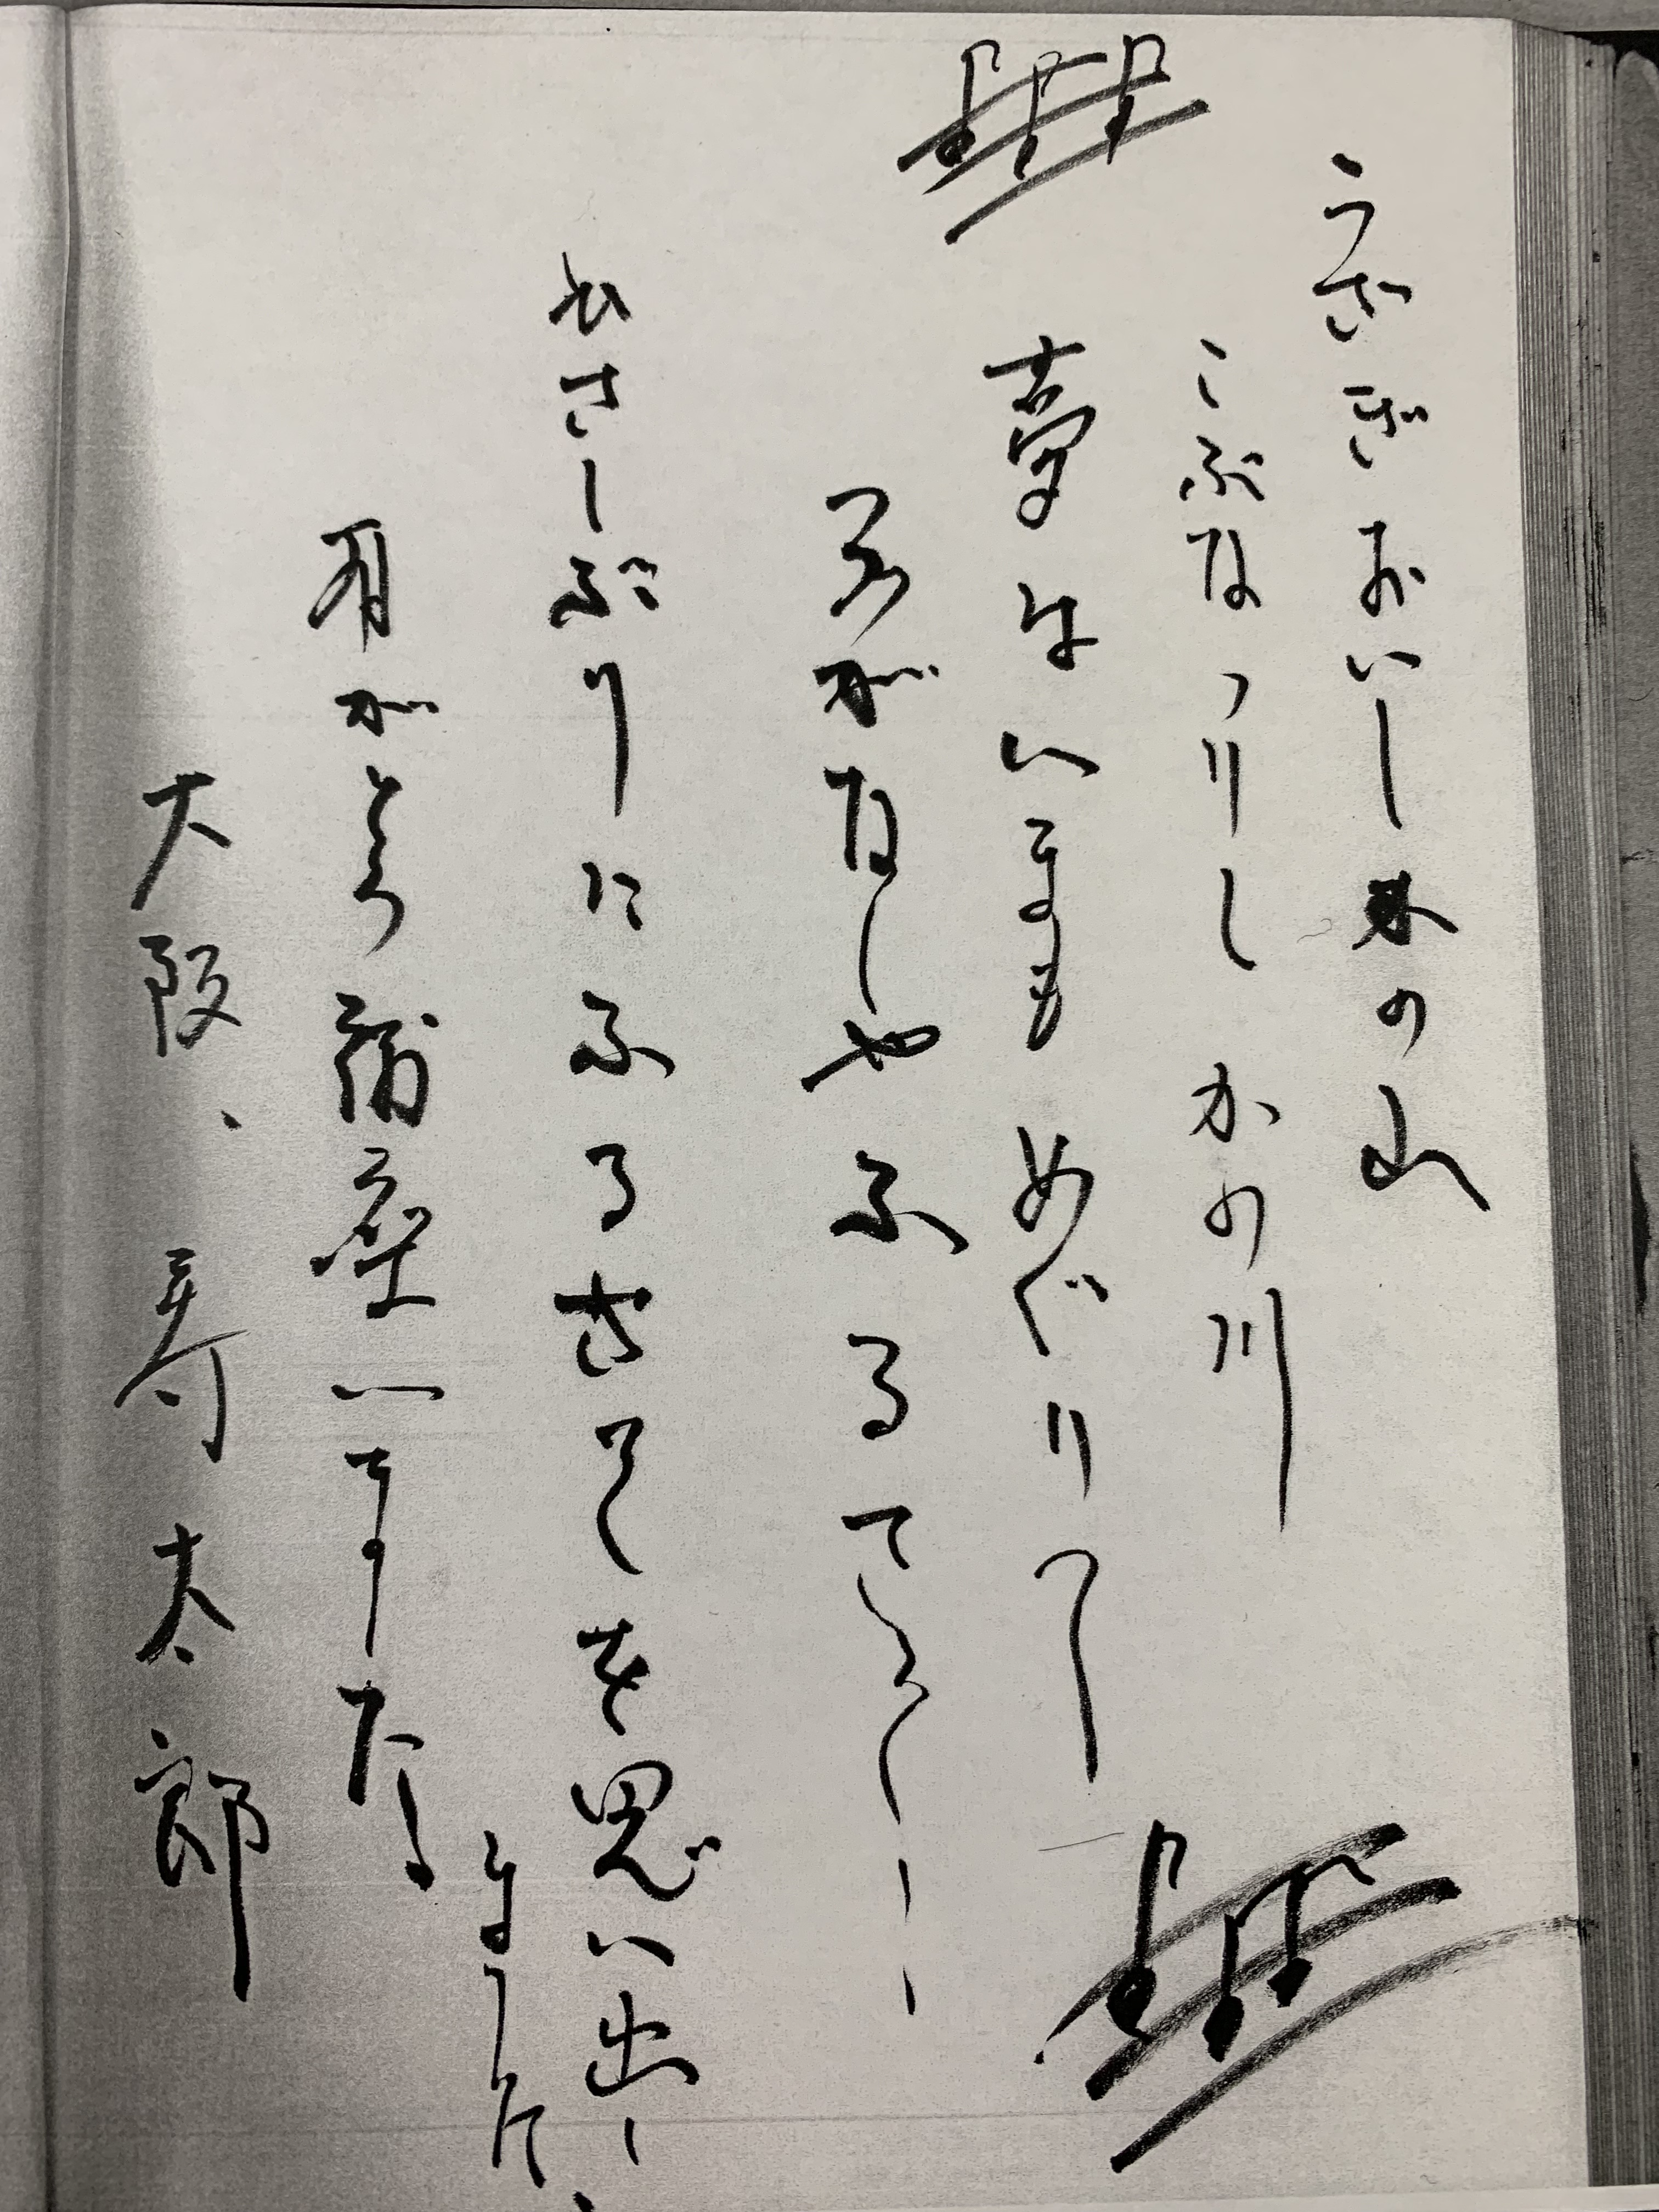 うさぎおいしかの山
こぶなつりしかの川
夢はいまもめぐりて
がなしやふる
さしぶりにふるさとを思い出し
ました.
有がとう御座いました
大阪、寿太郎